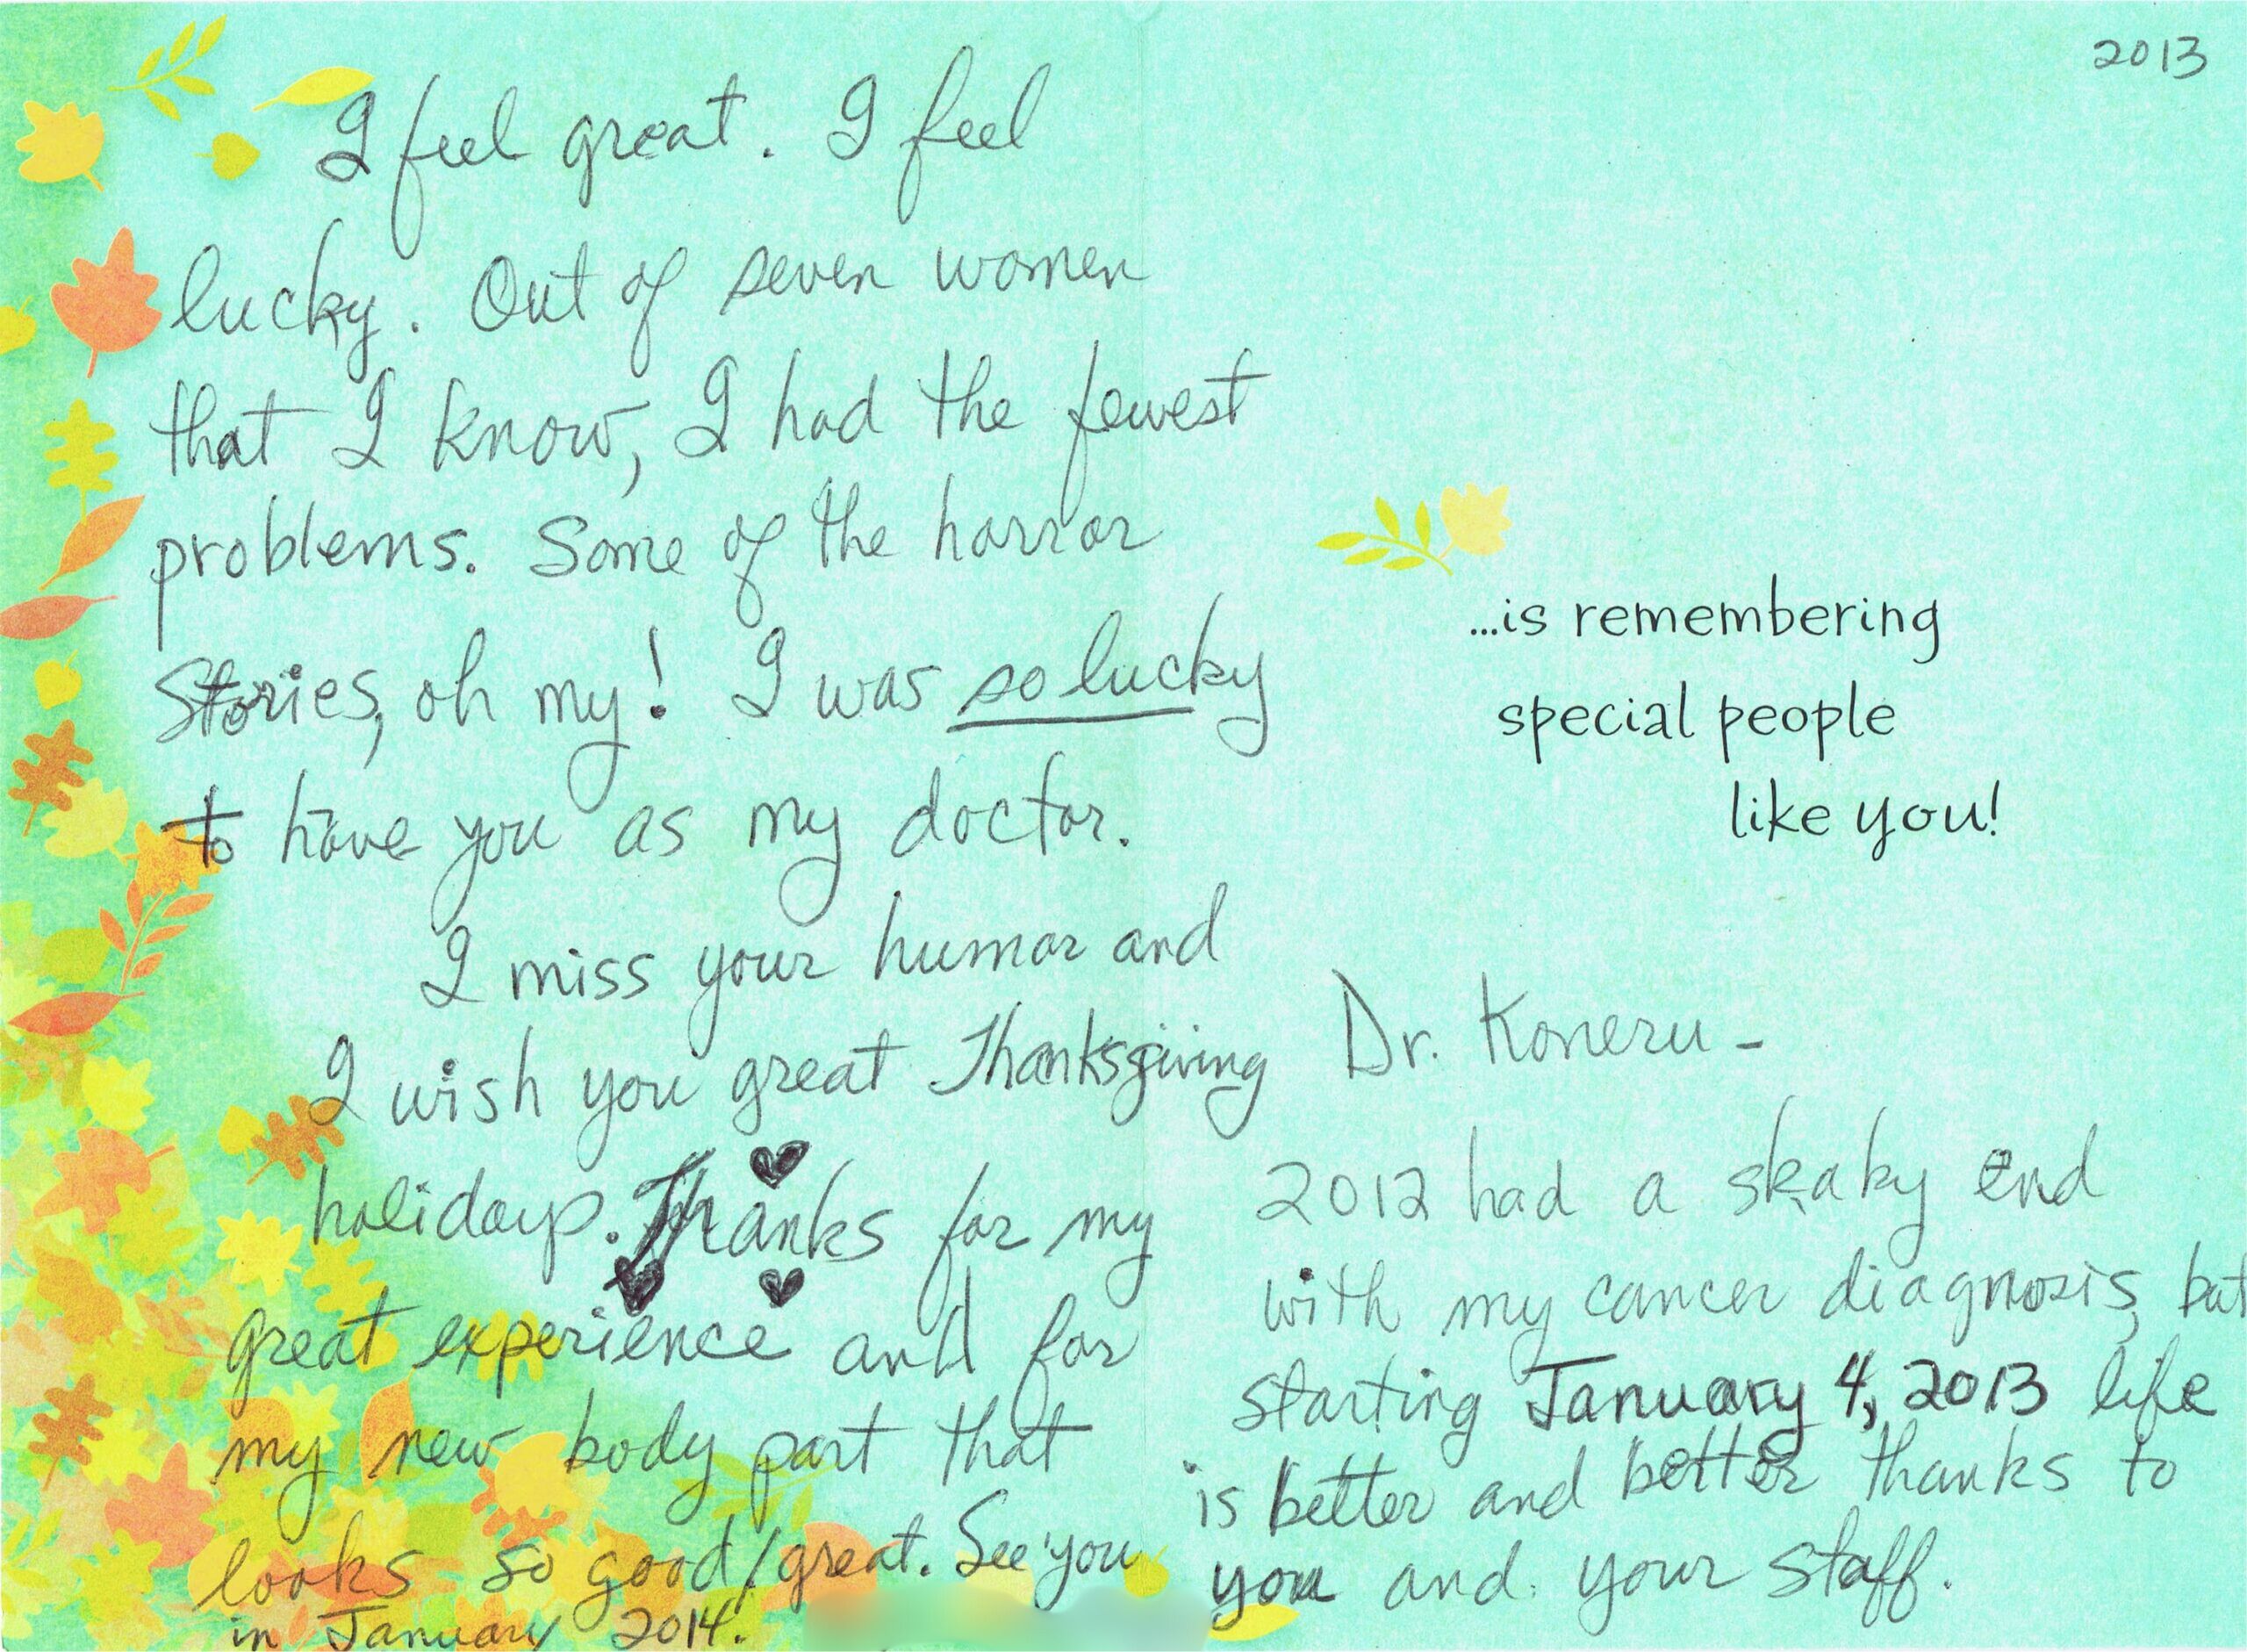 I feel great. I feel
lucky. Out of seven women
that I know, I had the fewest
problems. Some of the horror
Stories, oh my! I was so lucky
to have you as my doctor.
I miss your humor and
I wish you great Thanksgiving
holidays. Thanks for my
great experience and for
my new body part that
looks so good/great. See you
in January 2014.
2013
...is remembering
special people
like you!
Dr. Koneru -
2012 had a skaky end
with my cancer diagnosis, but
starting January 4, 2013 life
is better and better thanks to
you and your staff.